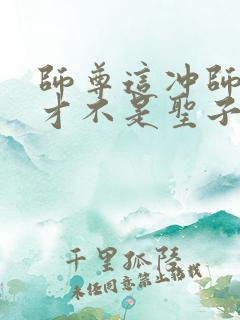 師尊這冲師
才不是聖子
千里孤陸
未经同意禁止转载